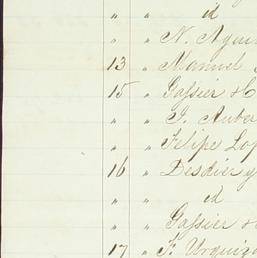 " " id
" " N. Agui
13 " Manuel
15 " Gassier &C
" " J. Auber
" " Filipe Lop
16 " Desdier y
" " id
" " Gassier &
17 " F. Urquiza